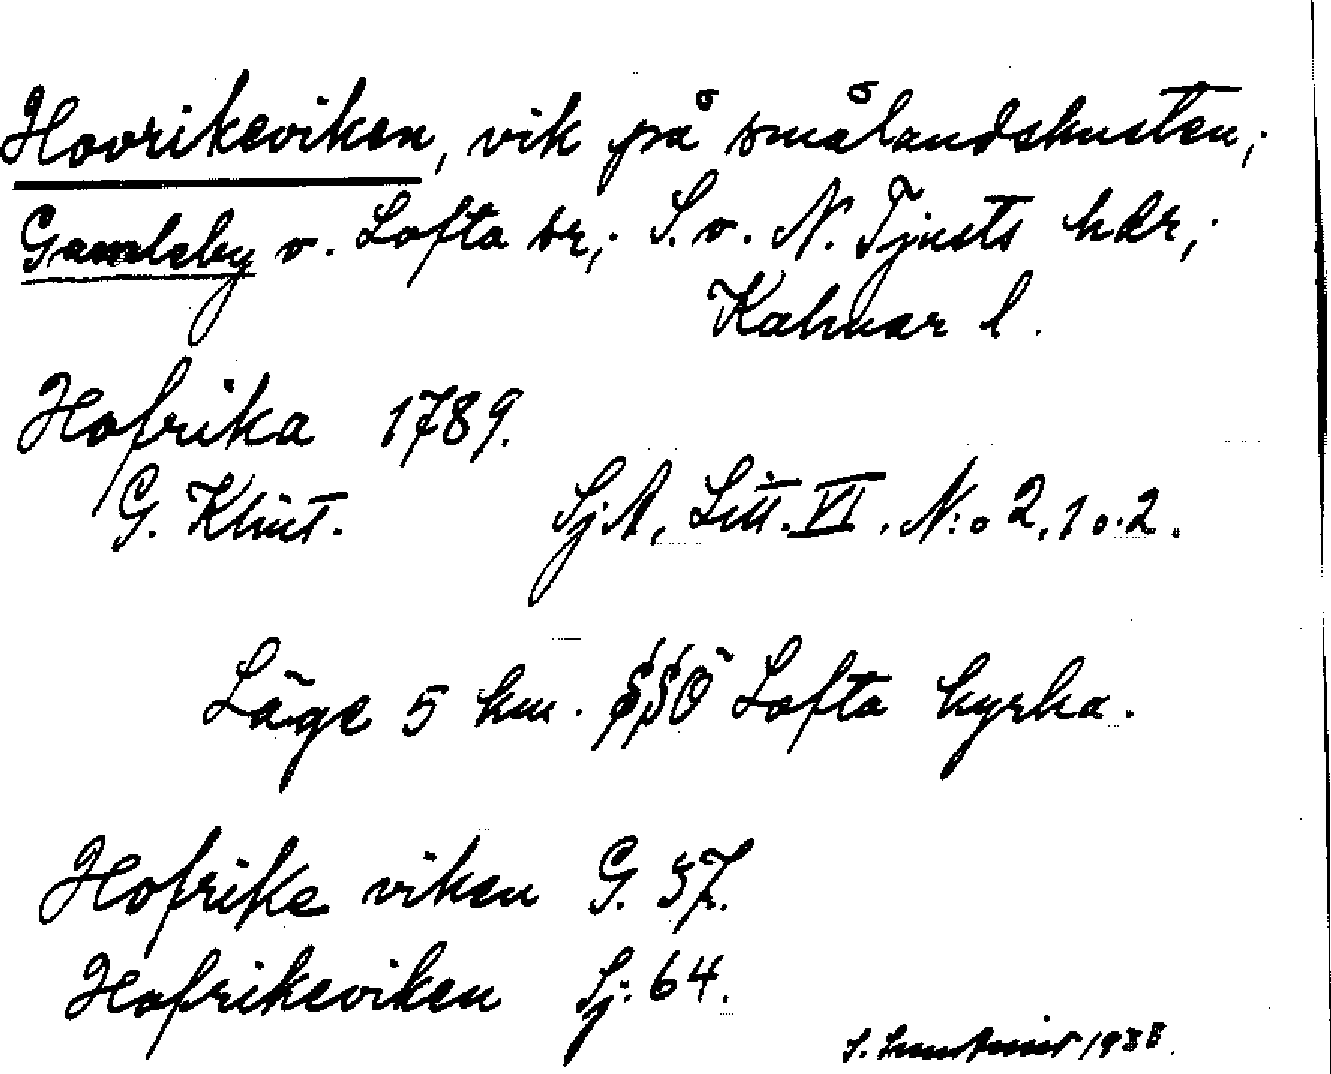 Hovrikeviken, vik på smålandskusten;
Gamleby o. Lofta sr; S. o. N. Tjusts hdr;
Kalmar l.
Hofrika 1789.
G. Klint. SjA, Litt. VI. N:o 2, 1 o. 2.
Läge 5 km. SSÖ Lofta kyrka.
Hofrike viken G. 37.
Hofrikeviken Sj. 64.
S. 1938.